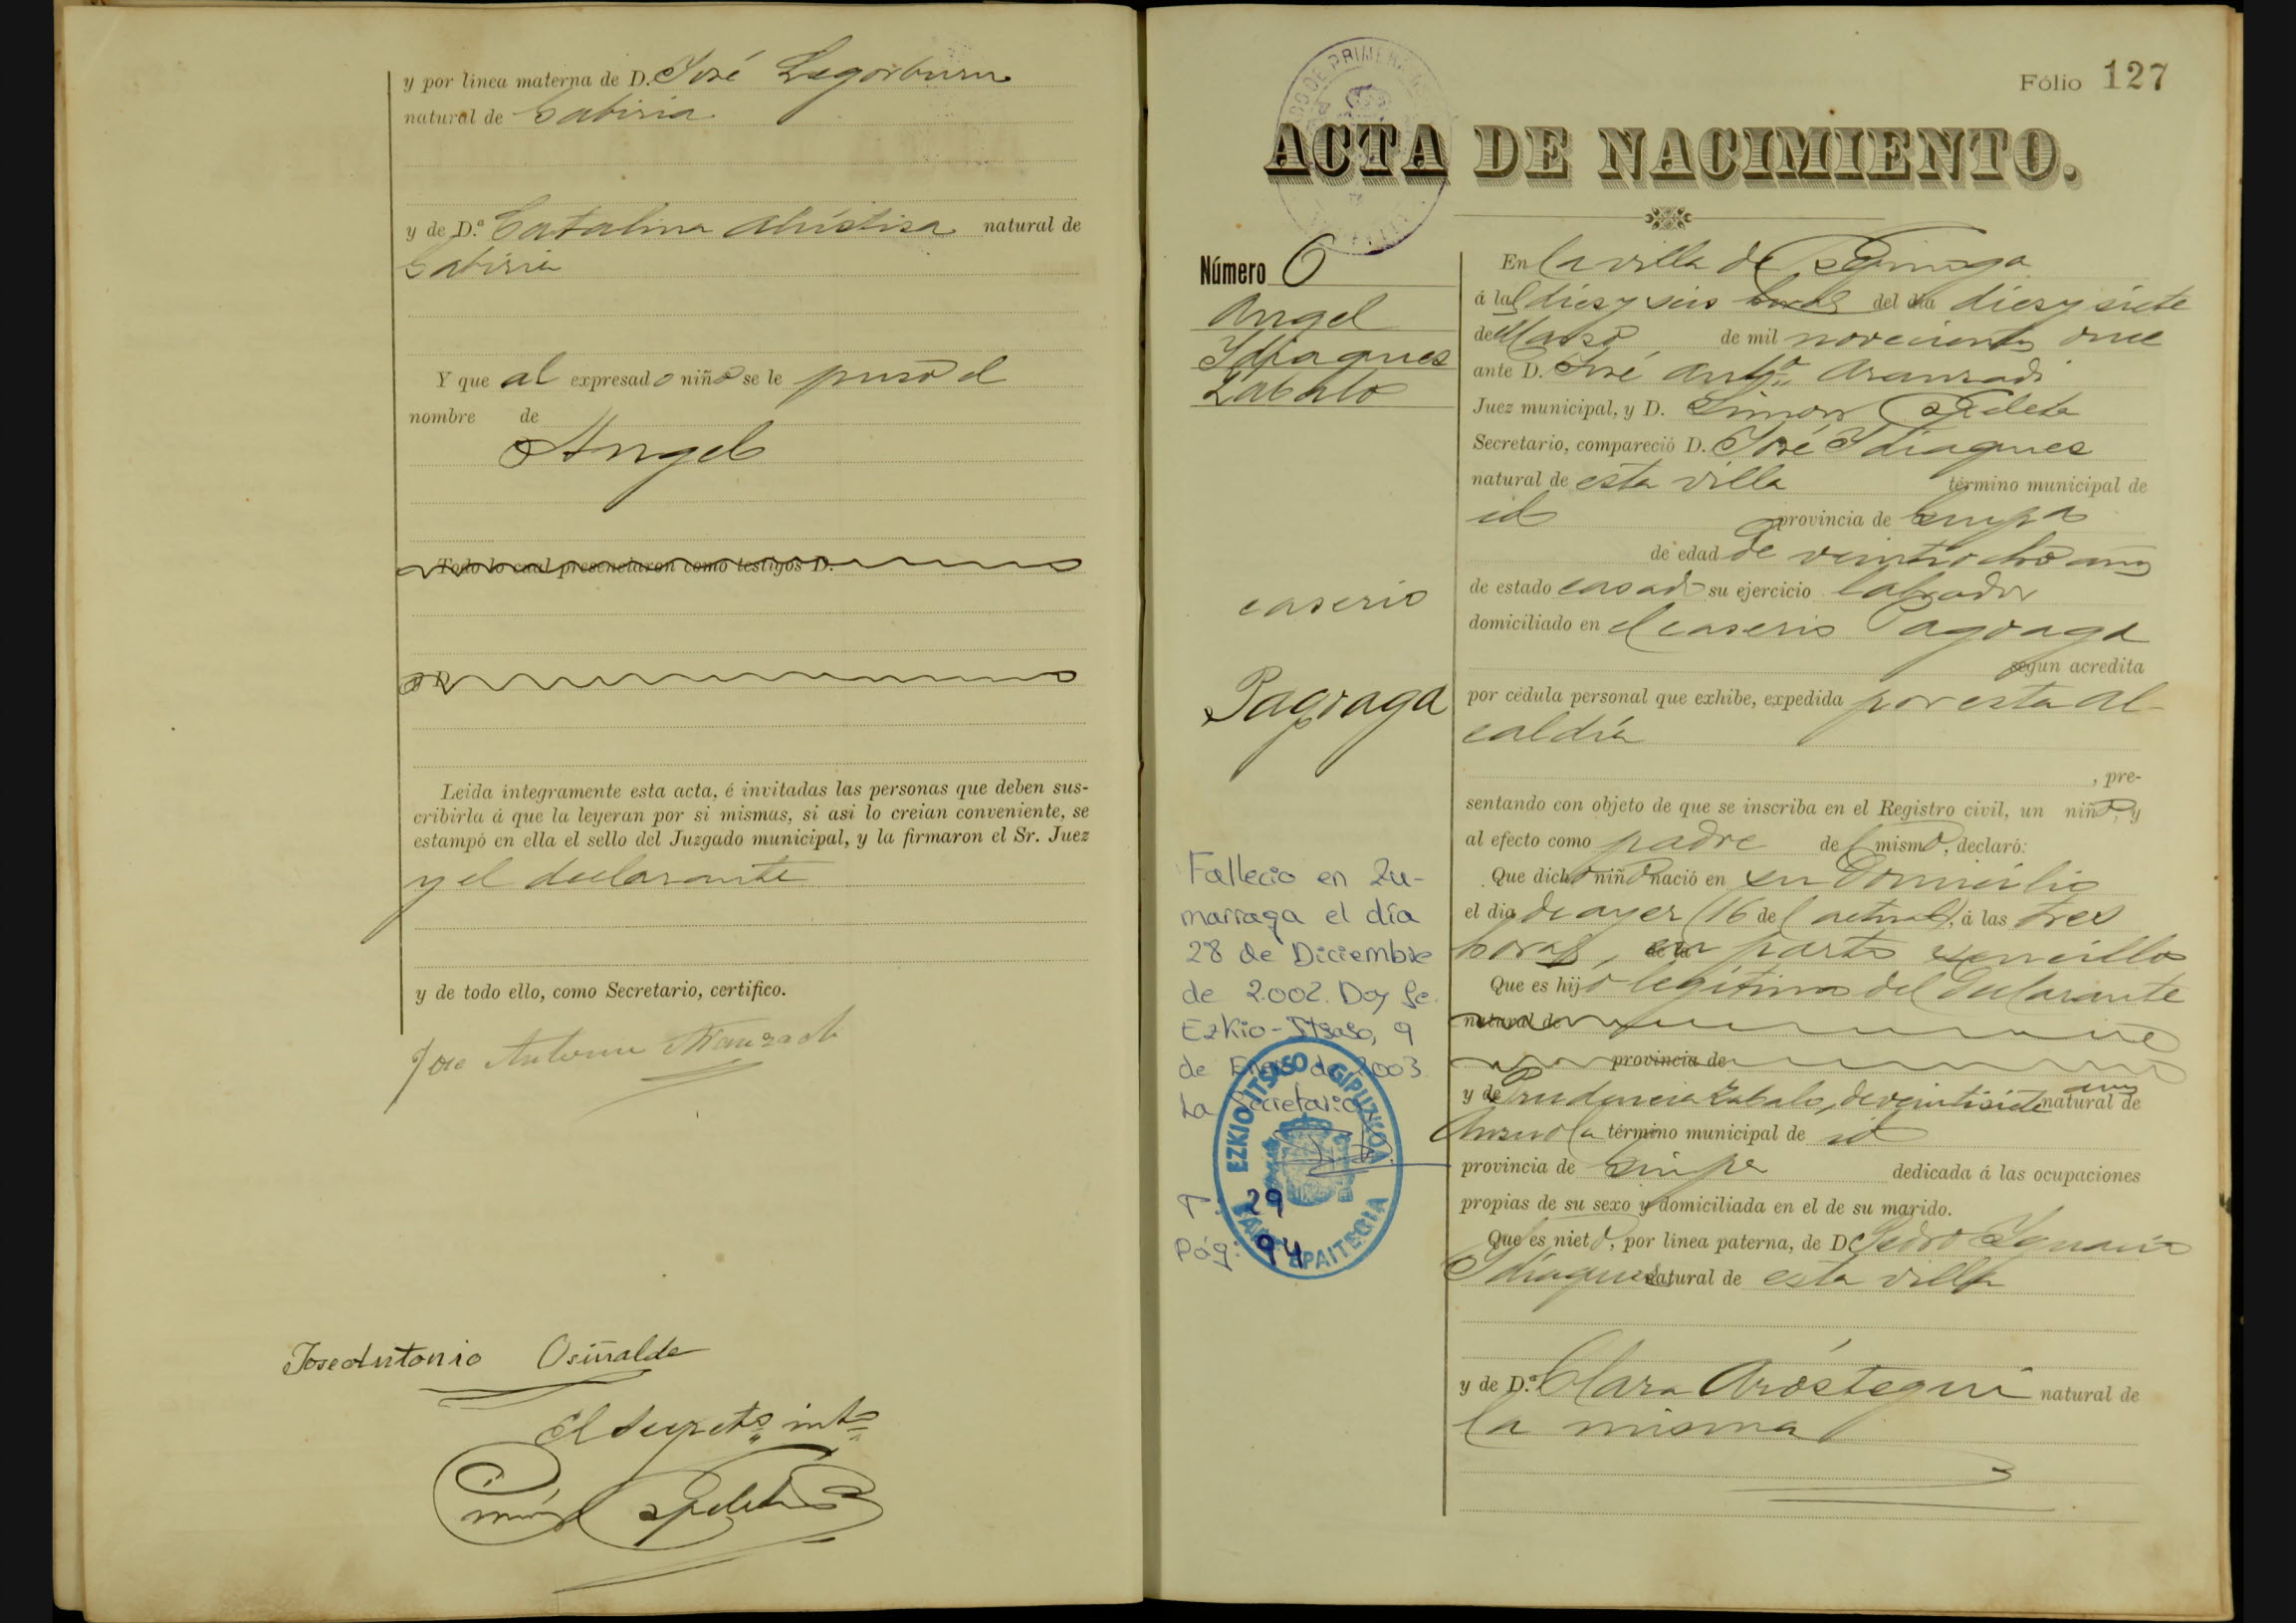 y por línea materna de D. José Legorburu
natural de Gabiria
y de D.ª Catalina natural de
Gabiria
Y que al expresado niño se le puso el
nombre de
Angel
Todo lo cual presenciaron como testigos D.
y D.
Leida integramente esta acta, é invitadas las personas que deben sus-
cribirla á que la leyeran por si mismas, si asi lo creian conveniente, se
estampó en ella el sello del Juzgado municipal, y la firmaron el Sr. Juez
y el declarante
y de todo ello, como Secretario, certifico.
Jose Antonio Aranzadi
Jose Antonio Osiñalde
El Secret.º int.º
Fólio 127
ACTA DE NACIMIENTO.
Número 6
Angel
Ydiaques
Zabalo
caserio
Pagoaga
Fallecio en Zu-
marraga el día
28 de Diciembre
de 2.002. Doy fe.
Ezkio-Itsaso, 9
de Enero de 2003
La Secretaria
EZKIO-ITSASO GIPUZKOA
EPAITEGIA
T: 29
Pág: 94
En la villa de
á las diez y seis horas del dia diez y siete
de Marzo de mil novecientos once
ante D. José Ant.º Aranzadi
Juez municipal, y D. Simon
Secretario, compareció D. José Ydiaques
natural de esta villa término municipal de
id provincia de Guip.a
de edad de veintiocho años
de estado casado su ejercicio labrador
domiciliado en el caserio Pagoaga
segun acredita
por cédula personal que exhibe, expedida por esta al-
caldía
, pre-
sentando con objeto de que se inscriba en el Registro civil, un niño, y
al efecto como padre del mismo, declaró:
Que dicho niño nació en su domicilio
el dia de ayer (16 del actual), á las tres
horas, en parto sencillo
Que es hijo legítimo del declarante
natural de
provincia de
y de Prudencia Zabalo, de veintisiete años natural de
Anzuola término municipal de id
provincia de Guip.a dedicada á las ocupaciones
propias de su sexo y domiciliada en el de su marido.
Que es nieto, por línea paterna, de D. Pedro Ygnacio
Ydiaques natural de esta villa
y de D.ª Clara Aróstegui natural de
la misma